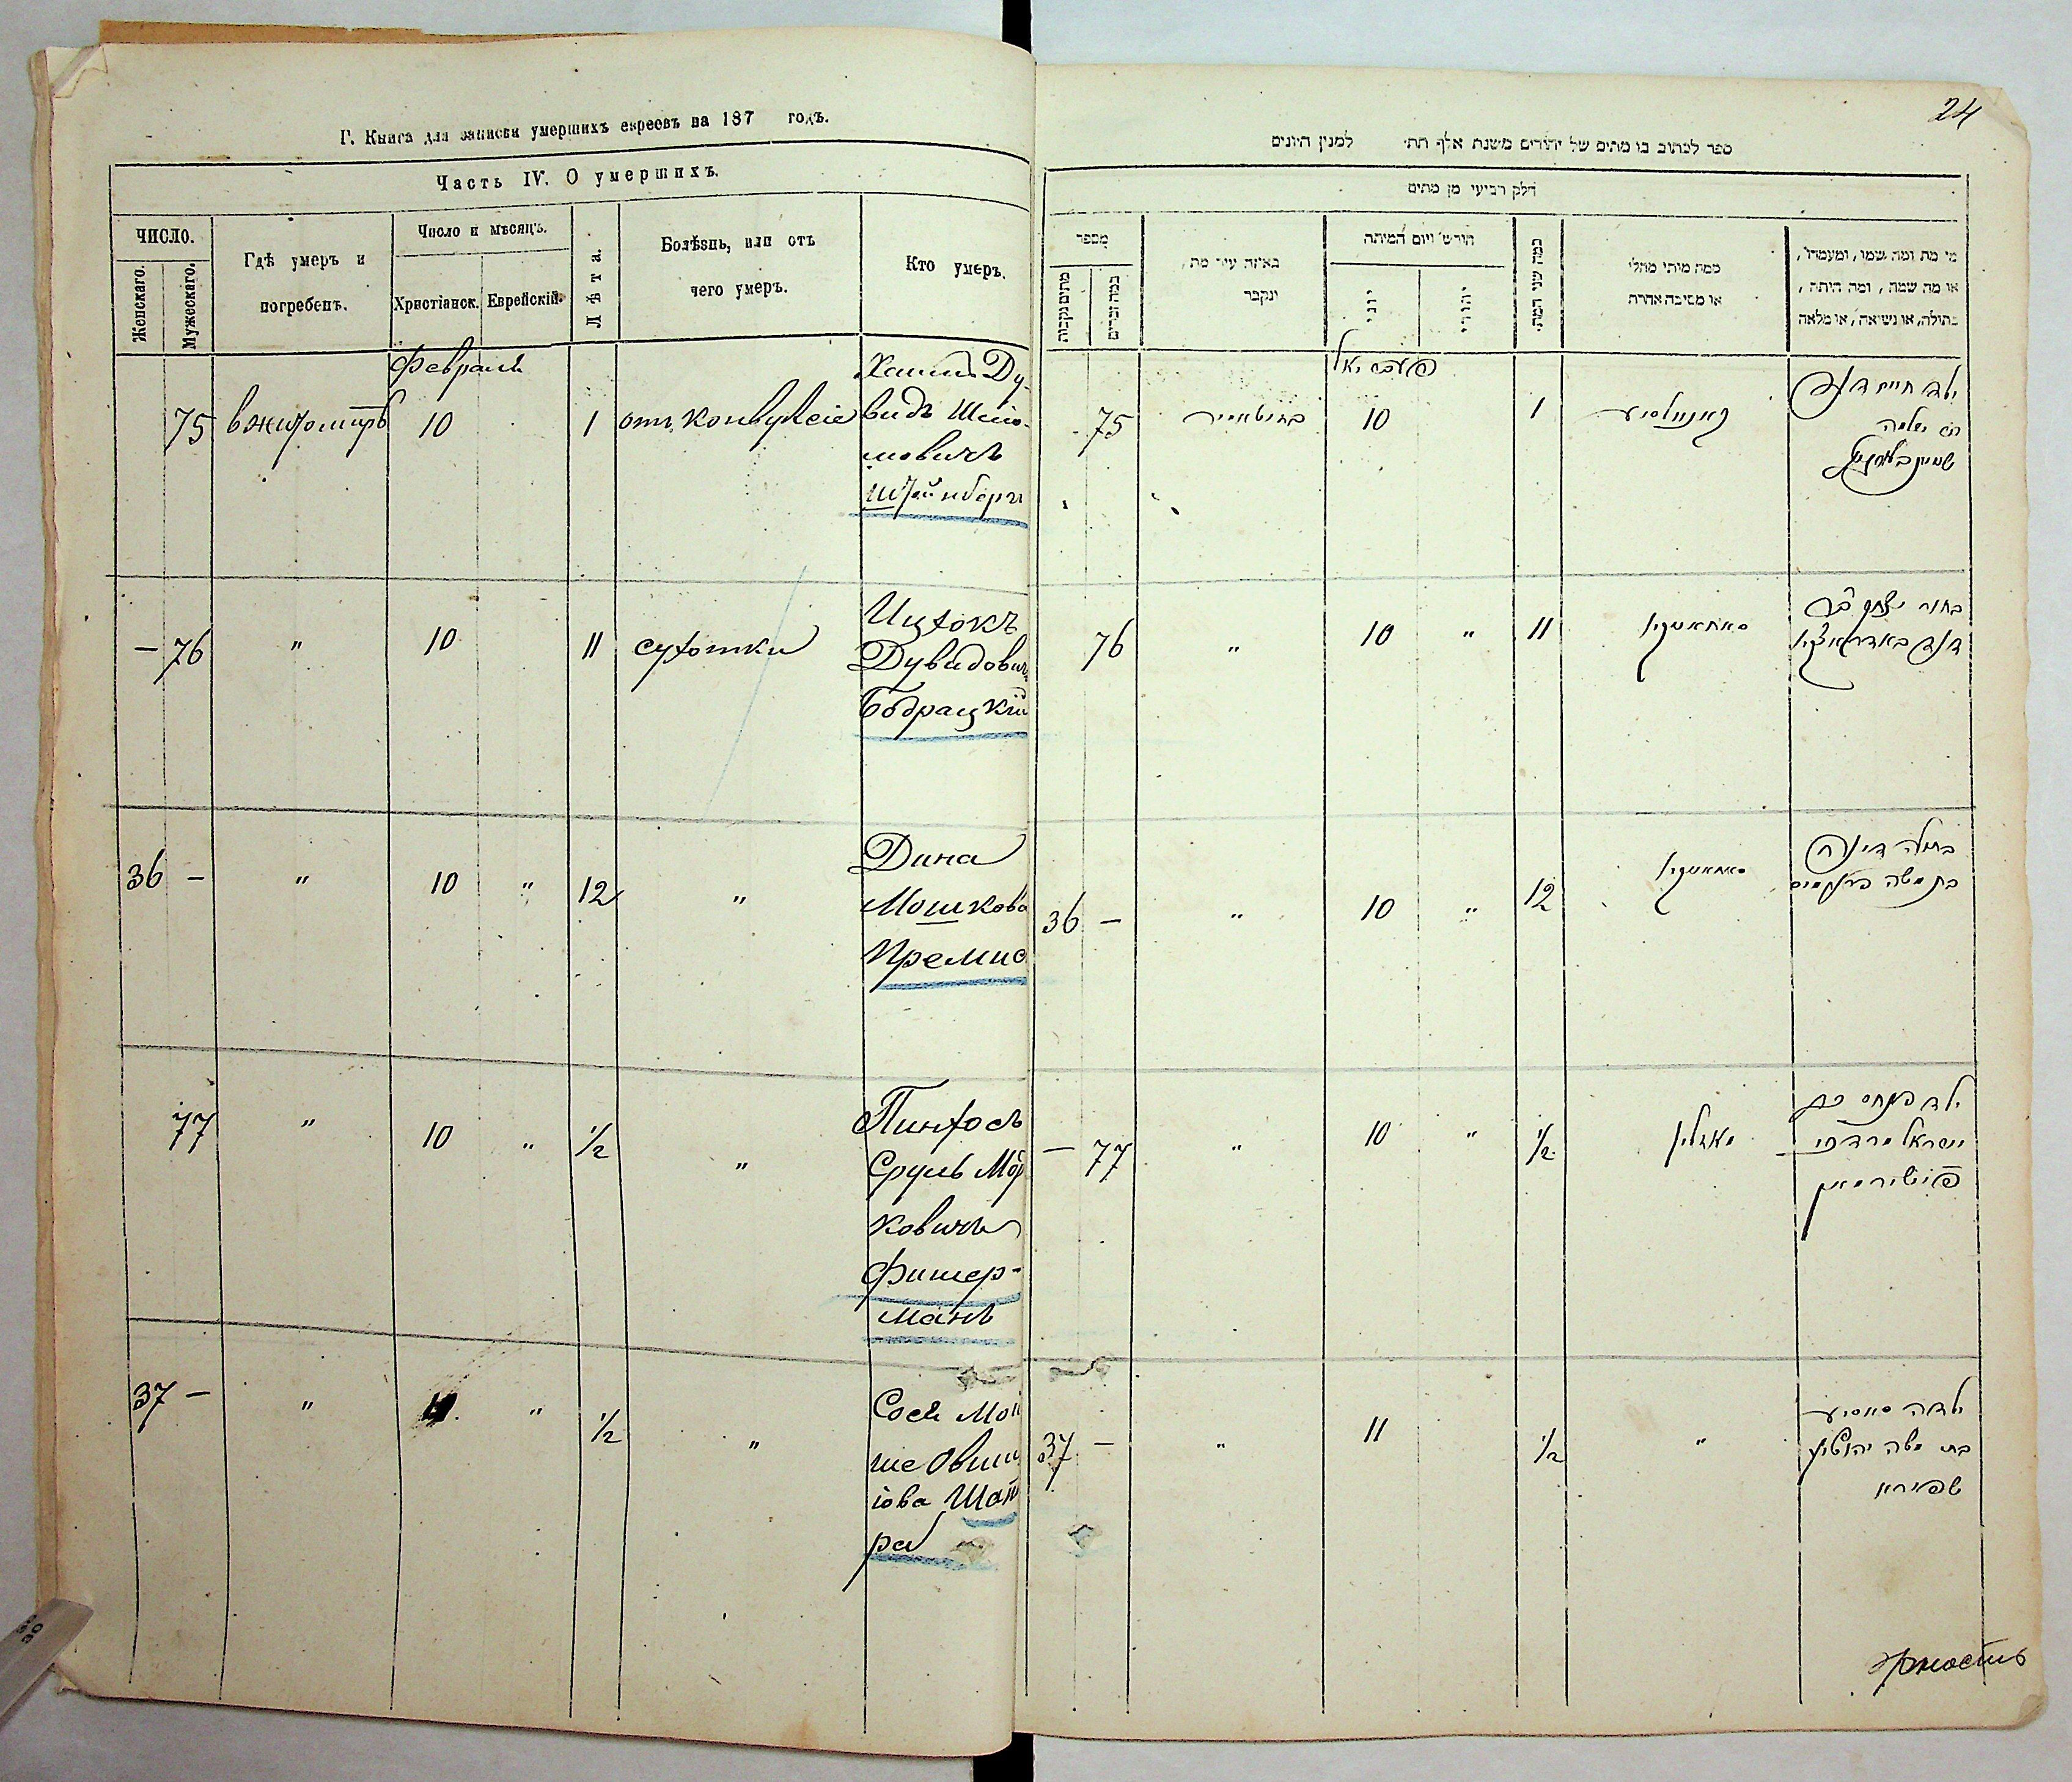 Г. Книга для записки умершихъ евреевъ на 187 годъ.
Часть IV. О умершихъ.
ЧИСЛО.
Женскаго.
Мужескаго.
Гдѣ умеръ и
погребенъ.
Число и мѣсяцъ.
Христіанск.
Еврейскій.
Лѣта.
Болѣзнь, или отъ
чего умеръ.
Кто умеръ.
Февраля
75 в житомирѣ 10 1 отъ конвулсіе
Хаимъ Ду-
видъ Шліо-
мовичъ
Штейнбергъ
— 76 " 10 11 сухотки
Ицхокъ
Дувидовичъ
Бодрацкій
36 — " 10 " 12 "
Дина
Мошкова
Премис
77 " 10 " 1/2 "
Пинхосъ
Сруль Мор
ковичъ
Фишер-
манъ
37 — " 11 " 1/2 "
Сося Мой
ше Овши
іова Шап
ра
24
ספר לכתוב בו מתים של יהודים משנת אלף תת׳ למנין היונים
חלק רביעי מן מתים
מספר
מתים נקבות
כמה זכרים
באיזה עיר מת,
ינקבר
חורש׳ ויום המיתה
יוני
יהודי
כמה שני המת.
כמה מותי מחלי
או מסיבה אחרת
מי מת ומה שמו, ומעמדו,
או מה שמה, ומה היתה,
בתולה, או נשואה, או מלאה
פעבריאל
75 בזיטאמיר 10 1 קאנוולסיע
ילד חיים דוד
בן שלמה
שטיינבערג
76 " 10 " 11 סאחאטקין
בחור יצחק ב"ר
דוד באדראצקין
36 — " 10 " 12 סאחאטקין
בתולה דינה
בת משה
— 77 " 10 " 1/2 מאזלין
ילד פנחס בן
ישראל מרדכי
פישערמאן
37 — " 11 1/2 "
ילדה סאסיע
בת משה
שפירא